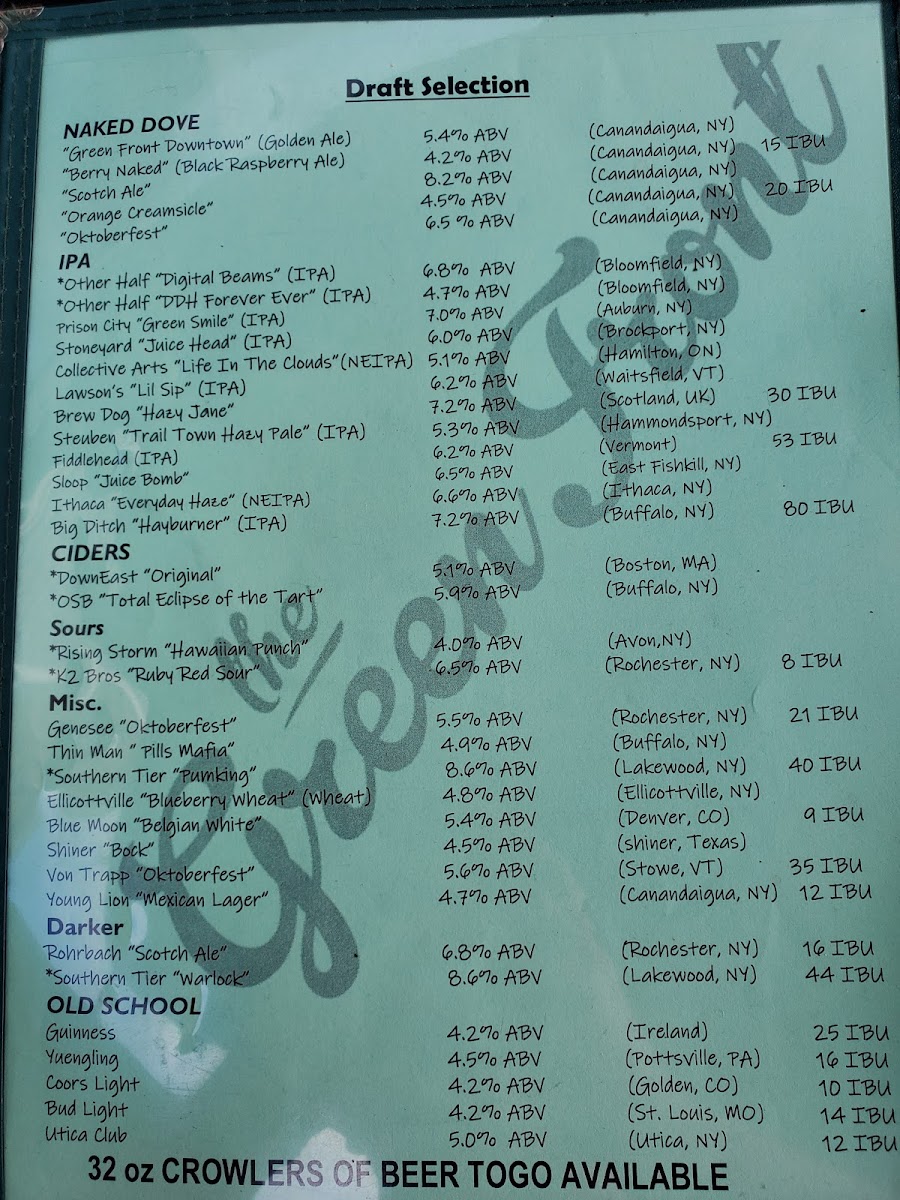 Draft Selection
NAKED DOVE
"Green Front Downtown" (Golden Ale) 5.4% ABV (Canandaigua, NY)
"Berry Naked" (Black Raspberry Ale) 4.2% ABV (Canandaigua, NY) 15 IBU
"Scotch Ale" 8.2% ABV (Canandaigua, NY)
"Orange Creamsicle" 4.5% ABV (Canandaigua, NY) 20 IBU
"Oktoberfest" 6.5 % ABV (Canandaigua, NY)
IPA
*Other Half "Digital Beams" (IPA) 6.8% ABV (Bloomfield, NY)
*Other Half "DDH Forever Ever" (IPA) 4.7% ABV (Bloomfield, NY)
Prison City "Green Smile" (IPA) 7.0% ABV (Auburn, NY)
Stoneyard "Juice Head" (IPA) 6.0% ABV (Brockport, NY)
Collective Arts "Life In The Clouds"(NEIPA) 5.1% ABV (Hamilton, ON)
Lawson's "Lil Sip" (IPA) 6.2% ABV (Waitsfield, VT)
Brew Dog "Hazy Jane" 7.2% ABV (Scotland, UK) 30 IBU
Steuben "Trail Town Hazy Pale" (IPA) 5.3% ABV (Hammondsport, NY)
Fiddlehead (IPA) 6.2% ABV (Vermont) 53 IBU
Sloop "Juice Bomb" 6.5% ABV (East Fishkill, NY)
Ithaca "Everyday Haze" (NEIPA) 6.6% ABV (Ithaca, NY)
Big Ditch "Hayburner" (IPA) 7.2% ABV (Buffalo, NY) 80 IBU
CIDERS
*DownEast "Original" 5.1% ABV (Boston, MA)
*OSB "Total Eclipse of the Tart" 5.9% ABV (Buffalo, NY)
Sours
*Rising Storm "Hawaiian Punch" 4.0% ABV (Avon,NY)
*K2 Bros "Ruby Red Sour" 6.5% ABV (Rochester, NY) 8 IBU
Misc.
Genesee "Oktoberfest" 5.5% ABV (Rochester, NY) 21 IBU
Thin Man " Pills Mafia" 4.9% ABV (Buffalo, NY)
*Southern Tier "Pumking" 8.6% ABV (Lakewood, NY) 40 IBU
Ellicottville "Blueberry Wheat" (Wheat) 4.8% ABV (Ellicottville, NY)
Blue Moon "Belgian White" 5.4% ABV (Denver, CO) 9 IBU
Shiner "Bock" 4.5% ABV (shiner, Texas)
Von Trapp "Oktoberfest" 5.6% ABV (Stowe, VT) 35 IBU
Young Lion "Mexican Lager" 4.7% ABV (Canandaigua, NY) 12 IBU
Darker
Rohrbach "Scotch Ale" 6.8% ABV (Rochester, NY) 16 IBU
*Southern Tier "Warlock" 8.6% ABV (Lakewood, NY) 44 IBU
OLD SCHOOL
Guinness 4.2% ABV (Ireland) 25 IBU
Yuengling 4.5% ABV (Pottsville, PA) 16 IBU
Coors Light 4.2% ABV (Golden, CO) 10 IBU
Bud Light 4.2% ABV (St. Louis, MO) 14 IBU
Utica Club 5.0% ABV (Utica, NY) 12 IBU
32 oz CROWLERS OF BEER TOGO AVAILABLE
the Green Front